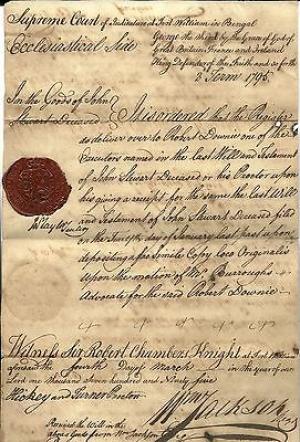 Supreme Court of Judicature at Fort William in Bengal
Ecclesiastical Side
George the third by the Grace of God of
Great Britain France and Ireland
King Defender of the Faith and so forth
2 Term 1795
In the Goods of John
Stewart Deceased
It is ordered that the Register
do deliver over to Robert Downie one of the
Executors named in the last Will and Testament
of John Stewart Deceased or his Proctor upon
his giving a receipt for the same the last Will
and Testament of John Stewart Deceased filed
on the day of January last past upon
depositing a fac Simile Copy loco Originalis
upon the motion of Mr. Burroughs
Advocate for the said Robert Downie
Witness Sir Robert Chambers Knight at Fort William
aforesaid the fourth Day of March in the year of our
Lord one thousand Seven hundred and Ninety five
Hickey and Turner Proctor
Wm Jackson
Received the Will in the
above Goods from Wm Jackson